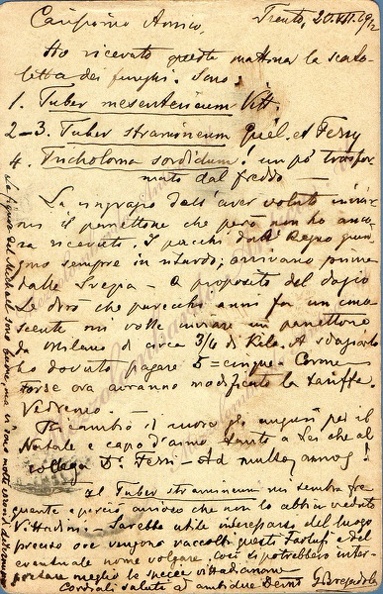 Carissimo Amico, Trento, 20.XII.1912
Ho ricevuto questa mattina la scato-
letta dei funghi. Sono:
1. Tuber mesentericum Vitt.
2-3. Tuber stramineum Quél. et Ferry
4. Tricholoma sordidum! un po' trasfor-
mato dal freddo —
La ringrazio dell'aver voluto inviar-
mi il panettone che però non ho anco-
ra ricevuto. I pacchi dall'Regno giun-
gono sempre in ritardo; arrivano prima
dalla Svezia — A proposito del dazio
Le dirò che parecchi anni fa un cono-
scente mi volle inviare un panettone
da Milano di circa 3/4 di Kilo. A sdaziarlo
ho dovuto pagare 5 = cinque Corone
Forse ora avranno modificato la tariffa.
Vedremo. —
Ricambio di nuovo gli auguri per il
Natale e capo d'anno tanto a Lei che al
collega Dr. Ferri — Ad multos annos!
Il Tuber stramineum mi sembra fre-
quente e perciò curioso che non lo abbia veduto
Vittadini — Sarebbe utile interessarsi del luogo
preciso ove vengono raccolti questi Tartufi e del
eventuale nome volgare, così si potrebbero inter-
pretare meglio le specie vittadiniane
Cordiali saluti ad ambidue Devmo G. Bresadola
La figura del Michele sono buone, ma vi sono molti errori di